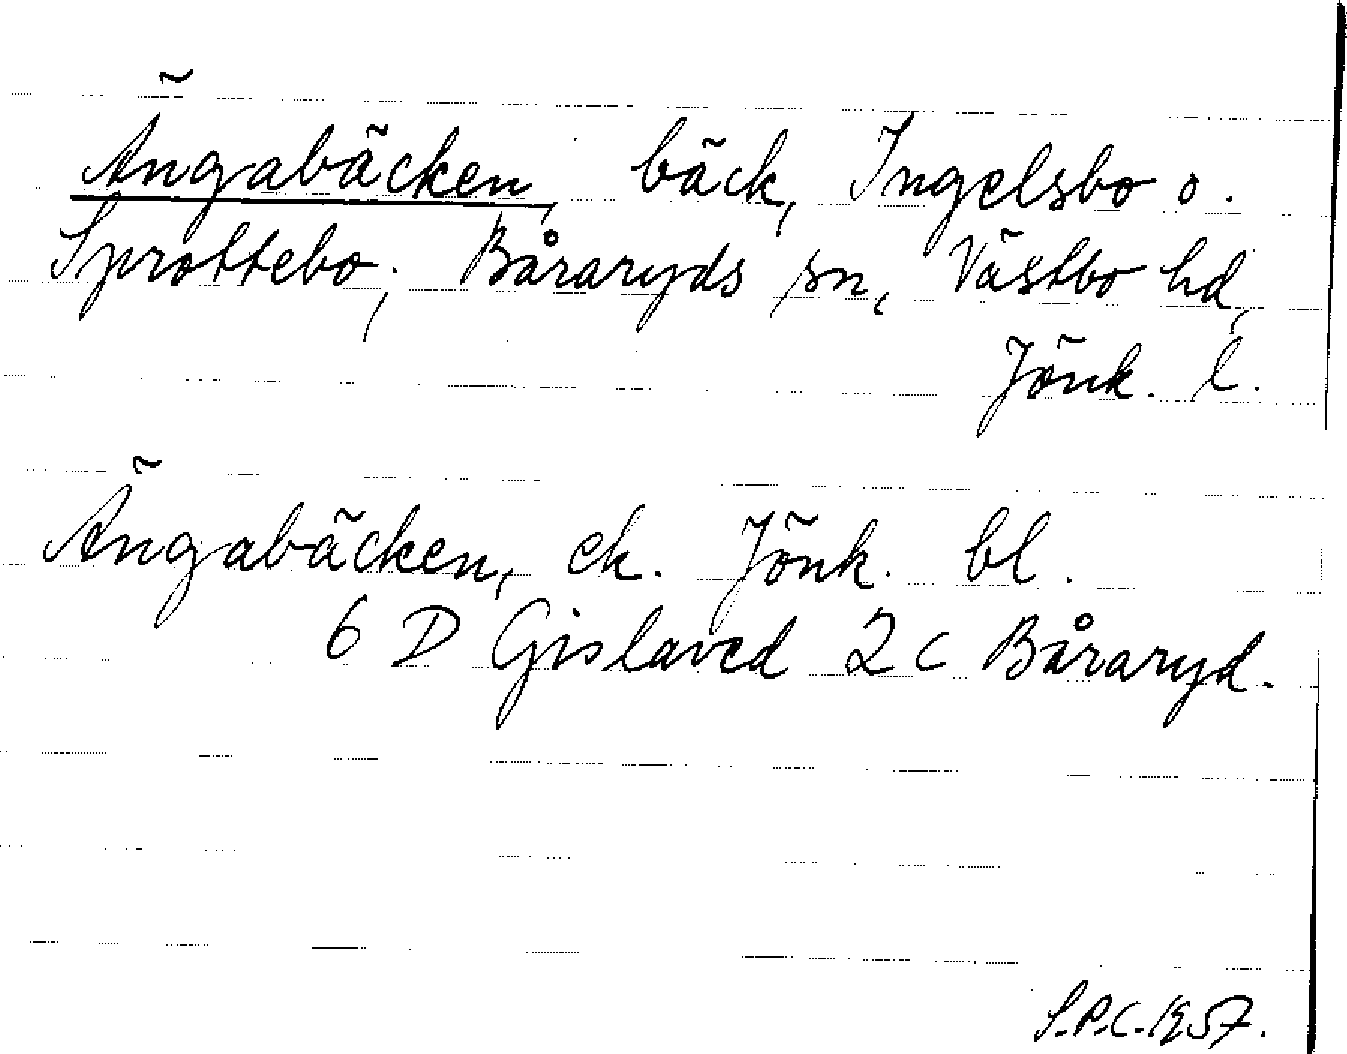 Ängabäcken, bäck, Ingelsbo o.
Sprottebo, Båraryds sn, Västbo hd,
Jönk. l.
Ängabäcken, ek. Jönk. bl.
6 D Gislaved 2 c Båraryd.
S.P.C. 1957.